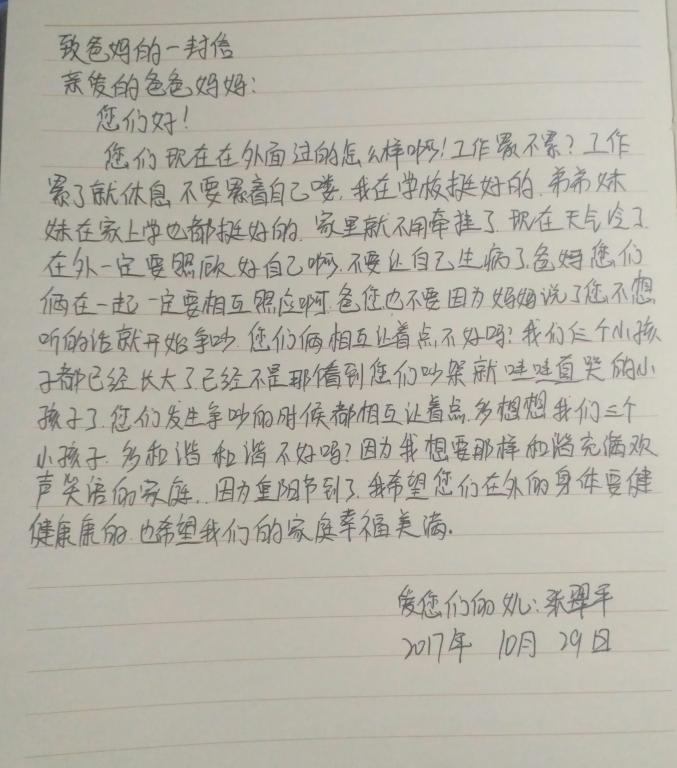 致爸妈的一封信
亲爱的爸爸妈妈:
您们好!
您们现在在外面过的怎么样啊!工作累不累?工作
累了就休息,不要累着自己喽,我在学校挺好的,弟弟妹
妹在家上学也都挺好的,家里就不用牵挂了,现在天气冷了,
在外一定要照顾好自己啊,不要让自己生病了,爸妈您们
俩在一起一定要相互照应啊,爸您也不要因为妈妈说了您不想
听的话就开始争吵,您们俩相互让着点,不好吗?我们仨个小孩
子都已经长大了,已经不是那個看到您们吵架就哇哇直哭的小
孩子了,您们发生争吵的时候都相互让着点,多想想我们三个
小孩子,多和谐和谐不好吗?因为我想要那样和谐充满欢
声笑语的家庭,因为重阳节到了,我希望您们在外的身体要健
健康康的,也希望我们的家庭幸福美满。
爱您们的女儿:张翠平
2017年 10月 29日